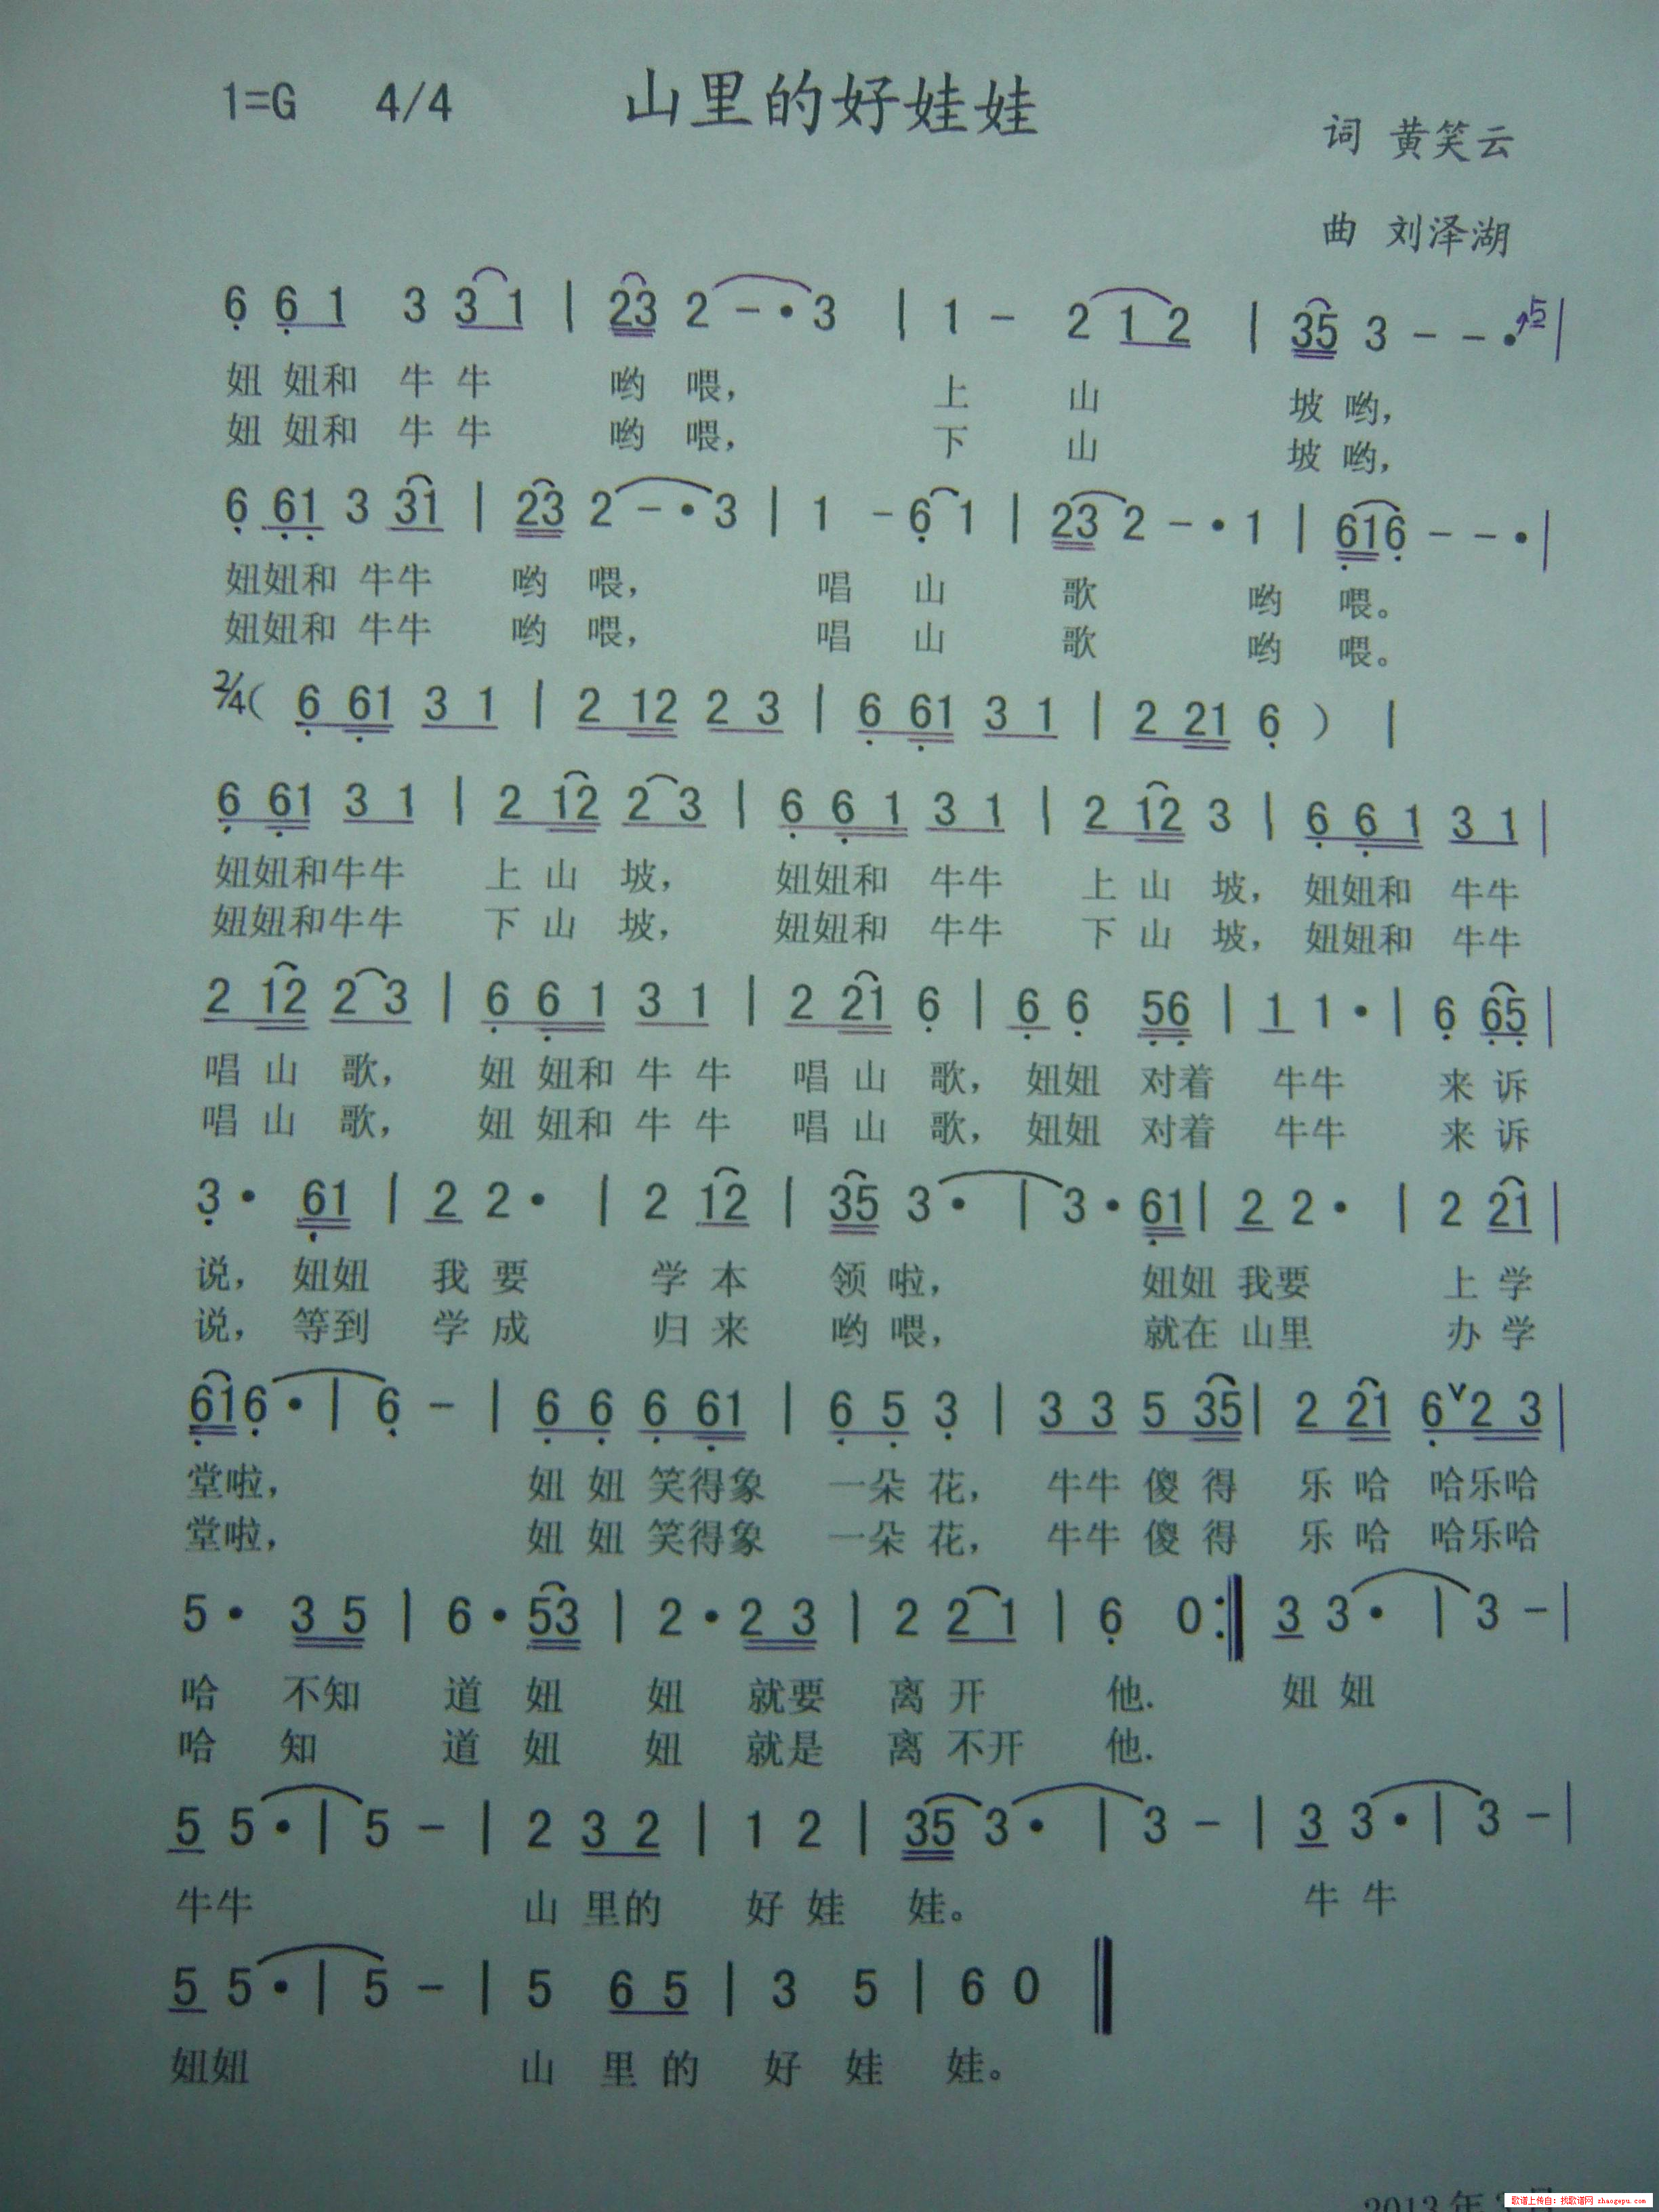 1=G 4/4 山里的好娃娃
词 黄笑云
曲 刘泽湖
6 6 1 3 3 1 | 23 2 - · 3 | 1 - 2 1 2 | 35 3 - - · 5 |
妞 妞和 牛 牛 哟 喂， 上 山 坡 哟，
妞 妞和 牛 牛 哟 喂， 下 山 坡 哟，
6 61 3 31 | 23 2 - · 3 | 1 - 6 1 | 23 2 - · 1 | 616 - - · |
妞妞和 牛牛 哟 喂， 唱 山 歌 哟 喂。
妞妞和 牛牛 哟 喂， 唱 山 歌 哟 喂。
2/4 ( 6 61 3 1 | 2 12 2 3 | 6 61 3 1 | 2 21 6 ) |
6 61 3 1 | 2 12 2 3 | 6 6 1 3 1 | 2 12 3 | 6 6 1 3 1 |
妞妞和牛牛 上 山 坡， 妞妞和 牛牛 上 山 坡， 妞妞和 牛牛
妞妞和牛牛 下 山 坡， 妞妞和 牛牛 下 山 坡， 妞妞和 牛牛
2 12 2 3 | 6 6 1 3 1 | 2 21 6 | 6 6 56 | 1 1 · | 6 65 |
唱 山 歌， 妞 妞和 牛 牛 唱 山 歌， 妞妞 对着 牛牛 来 诉
唱 山 歌， 妞 妞和 牛 牛 唱 山 歌， 妞妞 对着 牛牛 来 诉
3 · 61 | 2 2 · | 2 12 | 35 3 · | 3 · 61 | 2 2 · | 2 21 |
说， 妞妞 我 要 学 本 领 啦， 妞妞 我要 上 学
说， 等到 学 成 归 来 哟 喂， 就在 山里 办 学
616 · | 6 - | 6 6 6 61 | 6 5 3 | 3 3 5 35 | 2 21 6 ∨ 2 3 |
堂啦， 妞 妞 笑得象 一朵 花， 牛牛 傻 得 乐 哈 哈乐哈
堂啦， 妞 妞 笑得象 一朵 花， 牛牛 傻 得 乐 哈 哈乐哈
5 · 3 5 | 6 · 53 | 2 · 2 3 | 2 2 1 | 6 0 :‖ 3 3 · | 3 - |
哈 不知 道 妞 妞 就要 离 开 他. 妞 妞
哈 知 道 妞 妞 就是 离 不开 他.
5 5 · | 5 - | 2 3 2 | 1 2 | 35 3 · | 3 - | 3 3 · | 3 - |
牛牛 山 里的 好 娃 娃。 牛 牛
5 5 · | 5 - | 5 6 5 | 3 5 | 6 0 ‖
妞妞 山 里 的 好 娃 娃。
2013年
歌谱上传自：找歌谱网 zhaogepu.com